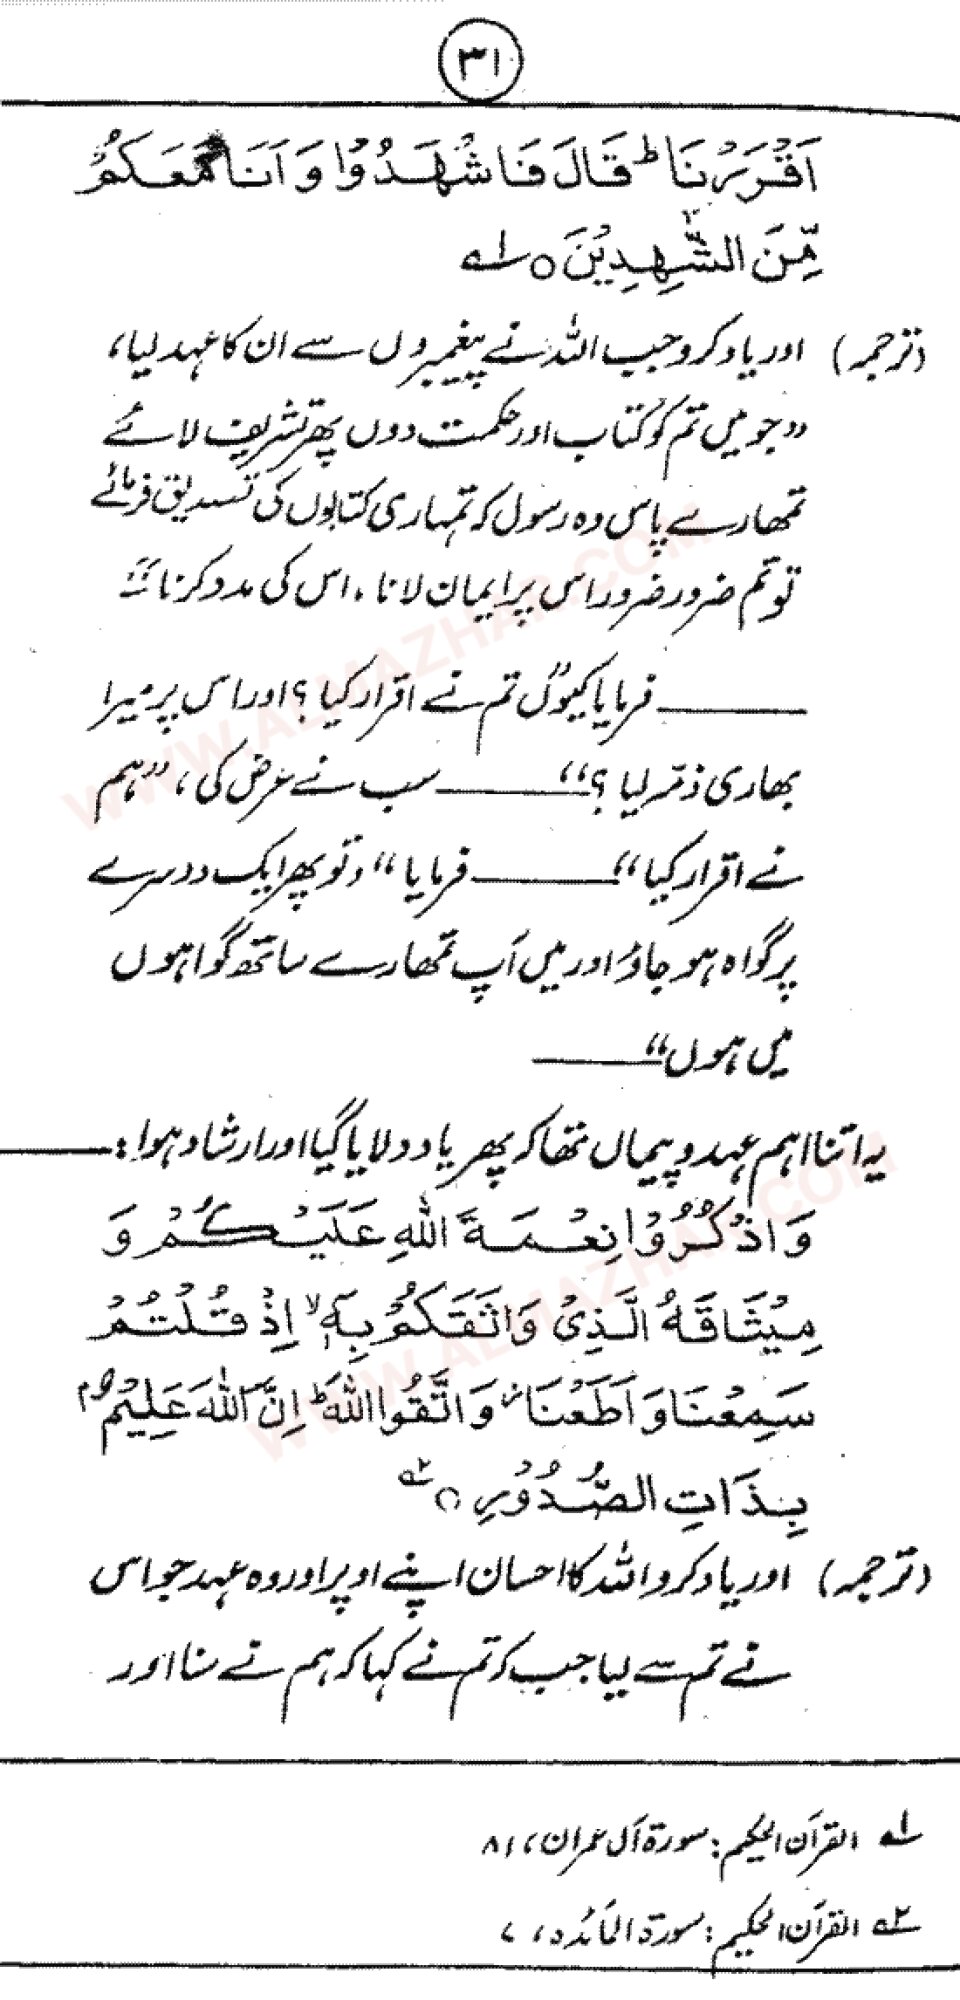 ۳۱
اَقْرَرْنَا ؕ قَالَ فَاشْهَدُوْا وَاَنَا مَعَكُمْ
مِّنَ الشّٰهِدِيْنَ ○ ۱ے
(ترجمہ) اور یاد کرو جب اللہ نے پیغمبروں سے ان کا عہد لیا،
”جو میں تم کو کتاب اور حکمت دوں پھر تشریف لائے
تمھارے پاس وہ رسول کہ تمہاری کتابوں کی تصدیق فرمائے
تو تم ضرور ضرور اس پر ایمان لانا۔ اس کی مدد کرنا“
——— فرمایا ”کیوں تم نے اقرار کیا؟ اور اس پر میرا
بھاری ذمّہ لیا؟“ ——— سب نے عرض کی، ”ہم
نے اقرار کیا“ ——— فرمایا ”تو پھر ایک دوسرے
پر گواہ ہو جاؤ اور میں آپ تمھارے ساتھ گواہوں
میں ہوں“ ———
یہ اتنا اہم عہد و پیماں تھا کہ پھر یاد دلایا گیا اور ارشاد ہوا: ———
وَاذْكُرُوْا نِعْمَةَ اللّٰهِ عَلَيْكُمْ وَ
مِيْثَاقَهُ الَّذِيْ وَاثَقَكُمْ بِهٖٓ ۙ اِذْ قُلْتُمْ
سَمِعْنَا وَاَطَعْنَا ۫ وَاتَّقُوا اللّٰهَ ؕ اِنَّ اللّٰهَ عَلِيْمٌۢ
بِذَاتِ الصُّدُوْرِ ○ ۲ے
(ترجمہ) اور یاد کرو اللہ کا احسان اپنے اوپر اور وہ عہد جو اس
نے تم سے لیا جب کہ تم نے کہا کہ ہم نے سنا اور
۱ے القرآن الحکیم: سورۃ آل عمران، ۸۱
۲ے القرآن الحکیم: سورۃ المائدہ، ۷
WWW.ALMAZHAR.COM
WWW.ALMAZHAR.COM